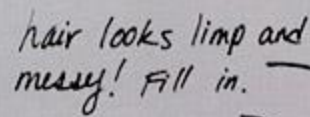 hair looks limp and
messy! Fill in.